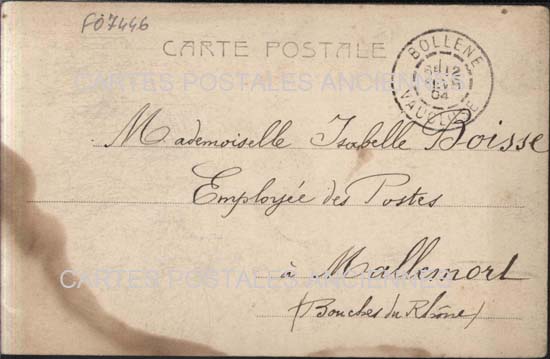 F07446
CARTE POSTALE
BOLLENE
12
04
VAUCLUSE
CARTES POSTALES ANCIENNES
Mademoiselle Isabelle Boisse
Employée des Postes
à Mallemort
CARTES POSTALES ANCIENNES
(Bouches du Rhône)